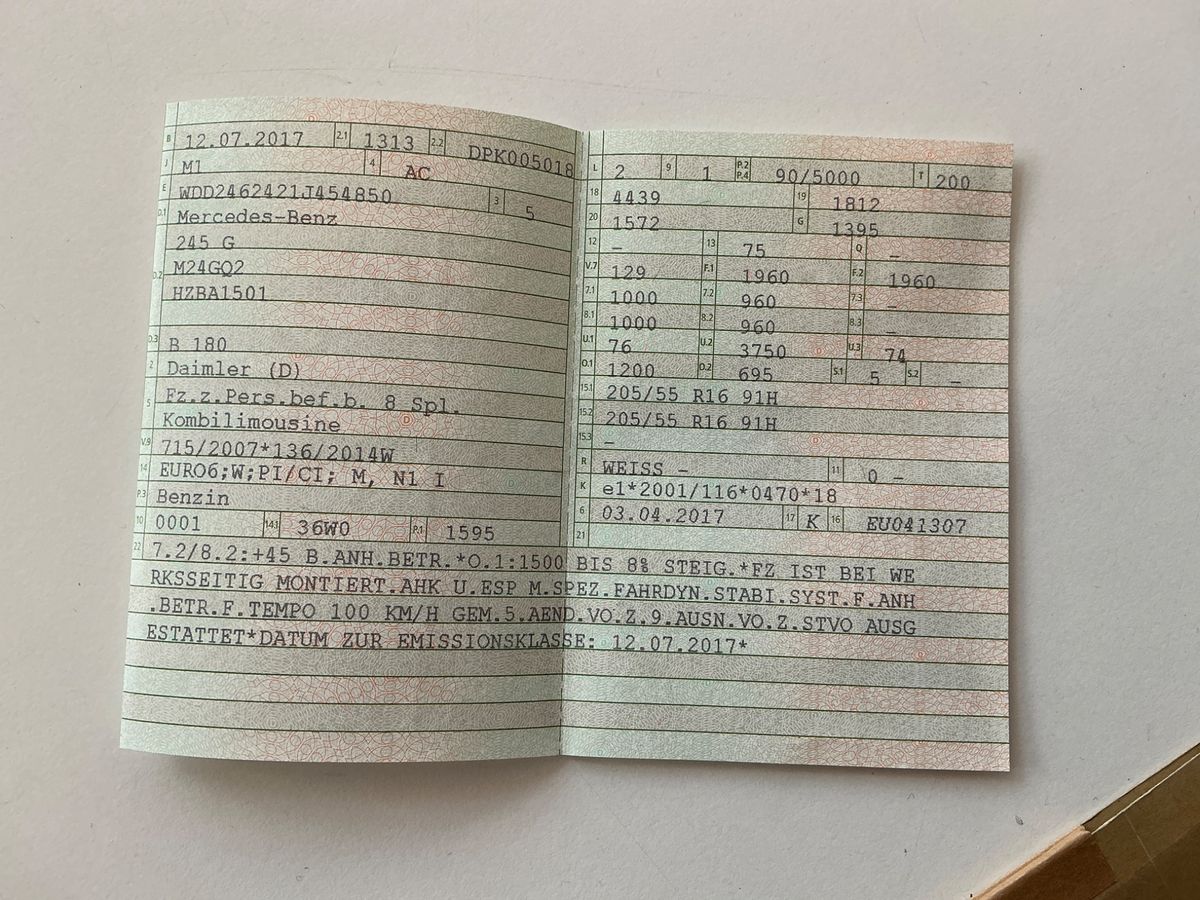 B 12.07.2017 2.1 1313 2.2 DPK005018
J M1 4 AC
E WDD2462421J454850 3 5
D.1 Mercedes-Benz
245 G
D.2 M24GQ2
HZBA1501
D.3 B 180
2 Daimler (D)
5 Fz.z.Pers.bef.b. 8 Spl.
Kombilimousine
V.9 715/2007*136/2014W
14 EURO6;W;PI/CI; M, N1 I
P.3 Benzin
10 0001 14.1 36W0 P.1 1595
L 2 9 1 P.2 P.4 90/5000 T 200
18 4439 19 1812
20 1572 G 1395
12 – 13 75 Q –
V.7 129 F.1 1960 F.2 1960
7.1 1000 7.2 960 7.3 –
8.1 1000 8.2 960 8.3 –
U.1 76 U.2 3750 U.3 74
O.1 1200 O.2 695 S.1 5 S.2 –
15.1 205/55 R16 91H
15.2 205/55 R16 91H
15.3 –
R WEISS – 11 0 –
K e1*2001/116*0470*18
6 03.04.2017 17 K 16 EU041307
21
22 7.2/8.2:+45 B.ANH.BETR.*O.1:1500 BIS 8% STEIG.*FZ IST BEI WE
RKSSEITIG MONTIERT.AHK U.ESP M.SPEZ.FAHRDYN.STABI.SYST.F.ANH
.BETR.F.TEMPO 100 KM/H GEM.5.AEND.VO.Z.9.AUSN.VO.Z.STVO AUSG
ESTATTET*DATUM ZUR EMISSIONSKLASSE: 12.07.2017*